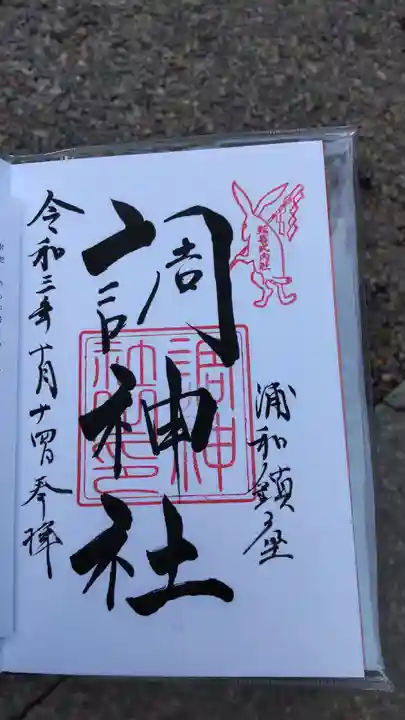 浦和鎮座
調神社
令和三年十月十四日奉拝
調神社印